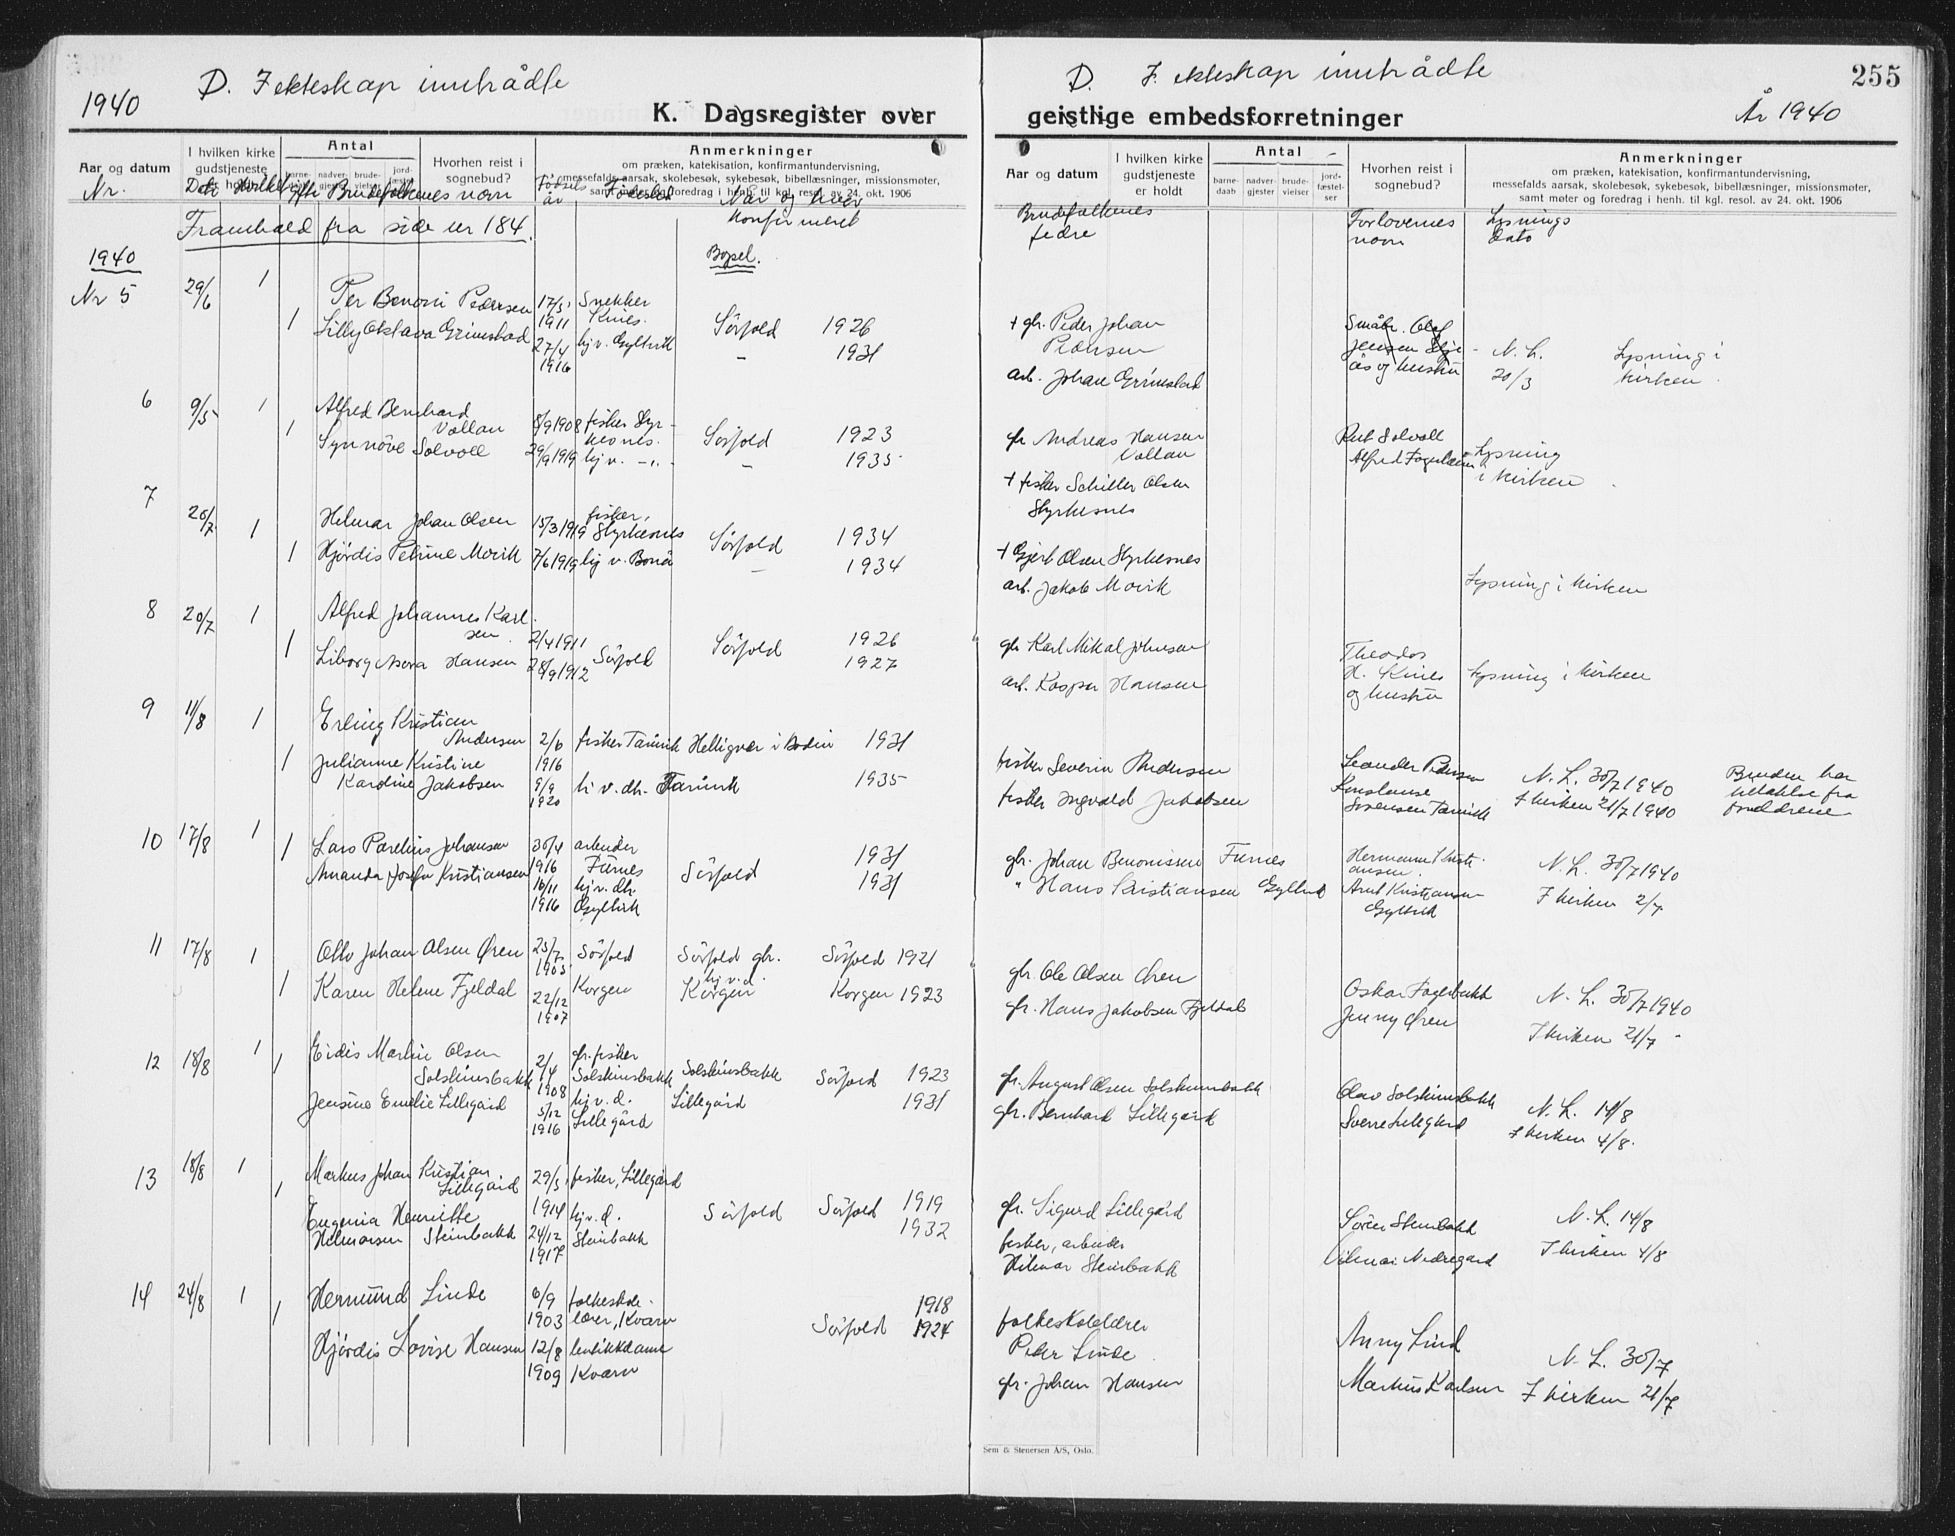 1940
D. I ekteskap inntrådte
K. Dagsregister over
Aar og datum
I hvilken kirke gudstjeneste er holdt
Antal
barne-daab
nadver-gjester
brude-vielser
jord-fæstel-ser
Hvorhen reist i sognebud?
Anmerkninger
om præken, katekisation, konfirmantundervisning,
messefalds aarsak, skolebesøk, sykebesøk, bibellæsninger, missionsmøter,
samt møter og foredrag i henh. til kgl. resol. av 24. okt. 1906
Nr. Brudefolkenes navn Fødsels år Fødested Når og hvor
konfirmert
Framhald fra side nr 184.
1940 Bopel.
Nr 5 29/6 1 Per Benoni Pedersen 17/5 1911 Snekker Kines. Sörfold 1926
1 Lilly Oktava Grimstad 27/4 1916 hj v. Gyltvik – 1931
6 9/5 1 Alfred Bernhard
Vallan 8/9 1908 fisker Styr-
kesnes. Sörfold 1923
1 Synnöve Solvoll 29/9 1919 hj v. –"– – 1935
7 20/7 1 Helmar Johan Olsen 15/3 1919 fisker, Styrkesnes Sörfold 1934
1 Hjördis Petrine Morvik 7/6 1919 hj v. Bonå – 1934
8 20/7 1 Alfred Johannes Karl-
sen 2/4 1911 Sörfold Sörfold 1926
1 Liborg Nora Hansen 28/9 1912 1927
9 11/8 1 Erling Kristian
Andersen 2/6 1916 fisker Tårnvik Helligvær i Bodin 1931
1 Julianne Kristine
Karoline Jakobsen 9/9 1920 hj v. dh. Tårnvik 1935
10 17/8 1 Lars Parelius Johansen 30/4 1916 arbeider Furnes Sörfold 1931
1 Amanda Josefa Kristiansen 16/11 1916 hj v. dh. Gyltvik 1931
11 17/8 1 Otto Johan Olsen Øren 25/7 1905 Sörfold Sörfold gbr. Sörfold 1921
1 Karen Helene Fjeldal 22/12 1907 Korgen hj.v.d. Korgen Korgen 1923
12 18/8 1 Eidis Martin Olsen
Solskinsbakk 2/4 1908 gr. fisker Solskinsbakk Solskinsbakk Sörfold 1923
1 Jensine Emelie Lillegård 5/12 1916 hj v. d. Lillegård Lillegård 1931
13 18/8 1 Markus Johan Kristian
Lillegård 29/5 1914 fisker, Lillegård Sörfold Sörfold 1919
1 Eugenia Henriette
Helmersen Steinbakk 24/12 1917 hj v. d. Steinbakk 1932
14 24/8 1 Hermund Linde 6/9 1903 folkeskole-
lærer, Kvarv 1918
1 Hjördis Lovise Hansen 12/8 1909 butikkdame Kvarv Sörfold 1924
D. I. ekteskap inntrådte
255
geistlige embedsforretninger
År 1940
Aar og datum
I hvilken kirke gudstjeneste er holdt
Antal
barne-daab
nadver-gjester
brude-vielser
jord-fæstel-ser
Hvorhen reist i sognebud?
Anmerkninger
om præken, katekisation, konfirmantundervisning,
messefalds aarsak, skolebesøk, sykebesøk, bibellæsninger, missionsmøter,
samt møter og foredrag i henh. til kgl. resol. av 24. okt. 1906
Brudefolkenes fedre
Forlovernes navn
Lysnings dato
+ gbr. Peder Johan
Pedersen
arb. Johan Grimstad
Småbr. Olof
Jensen
ås og hustru
N. L. 20/3
Lysning i kirken
gr Andreas Hansen
Vallan
+ fisker Schiller Olsen
Styrkesnes
Solvoll
Alfred Fagerheim
Lysning
i kirken
+ Gjert Olsen Styrkesnes
arb. Jakob Morvik
Lysning i kirken
gbr Karl Mikal Johnsen
arb. Kasper Hansen
Theodor
H. Kines
og hustru
Lysning i kirken
fisker Severin Andersen
fisker Ingvald Jakobsen
Leander Pedersen
Konstanse
Sörensen Tårnvik
N. L. 30/7 1940
I kirken 21/7 1940
Bruden har
tillatelse fra
foreldrene
gbr. Johan Benonissen Furnes
" Hans Kristiansen Gyltvik
Hermann Kristi-
ansen.
Arnt Kristiansen
Gyltvik
N. L. 30/7 1940
I kirken 2/7
gbr Ole Olsen Øren
gr. Hans Jakobsen Fjeldal
Oskar Fagerbakk
Jenny Øren
N. L. 30/7 1940
I kirken 21/7
gr. August Olsen Solskinnsbakk
gbr. Bernhard Lillegård
Olav Solskinsbakk
Sverre Lillegård
N. L. 14/8
I kirken 4/8.
gr. Sigurd Lillegård
fisker, arbeider
Hilmar Steinbakk
Sören Steinbakk
Nedregård
N. L. 14/8
I kirken 4/8
folkeskolelærer
Peder Linde
gr. Johan Hansen
Anny Lind
Markus Karlsen
N. L. 30/7
I kirken 21/7
Sem & Stenersen A/S, Oslo.